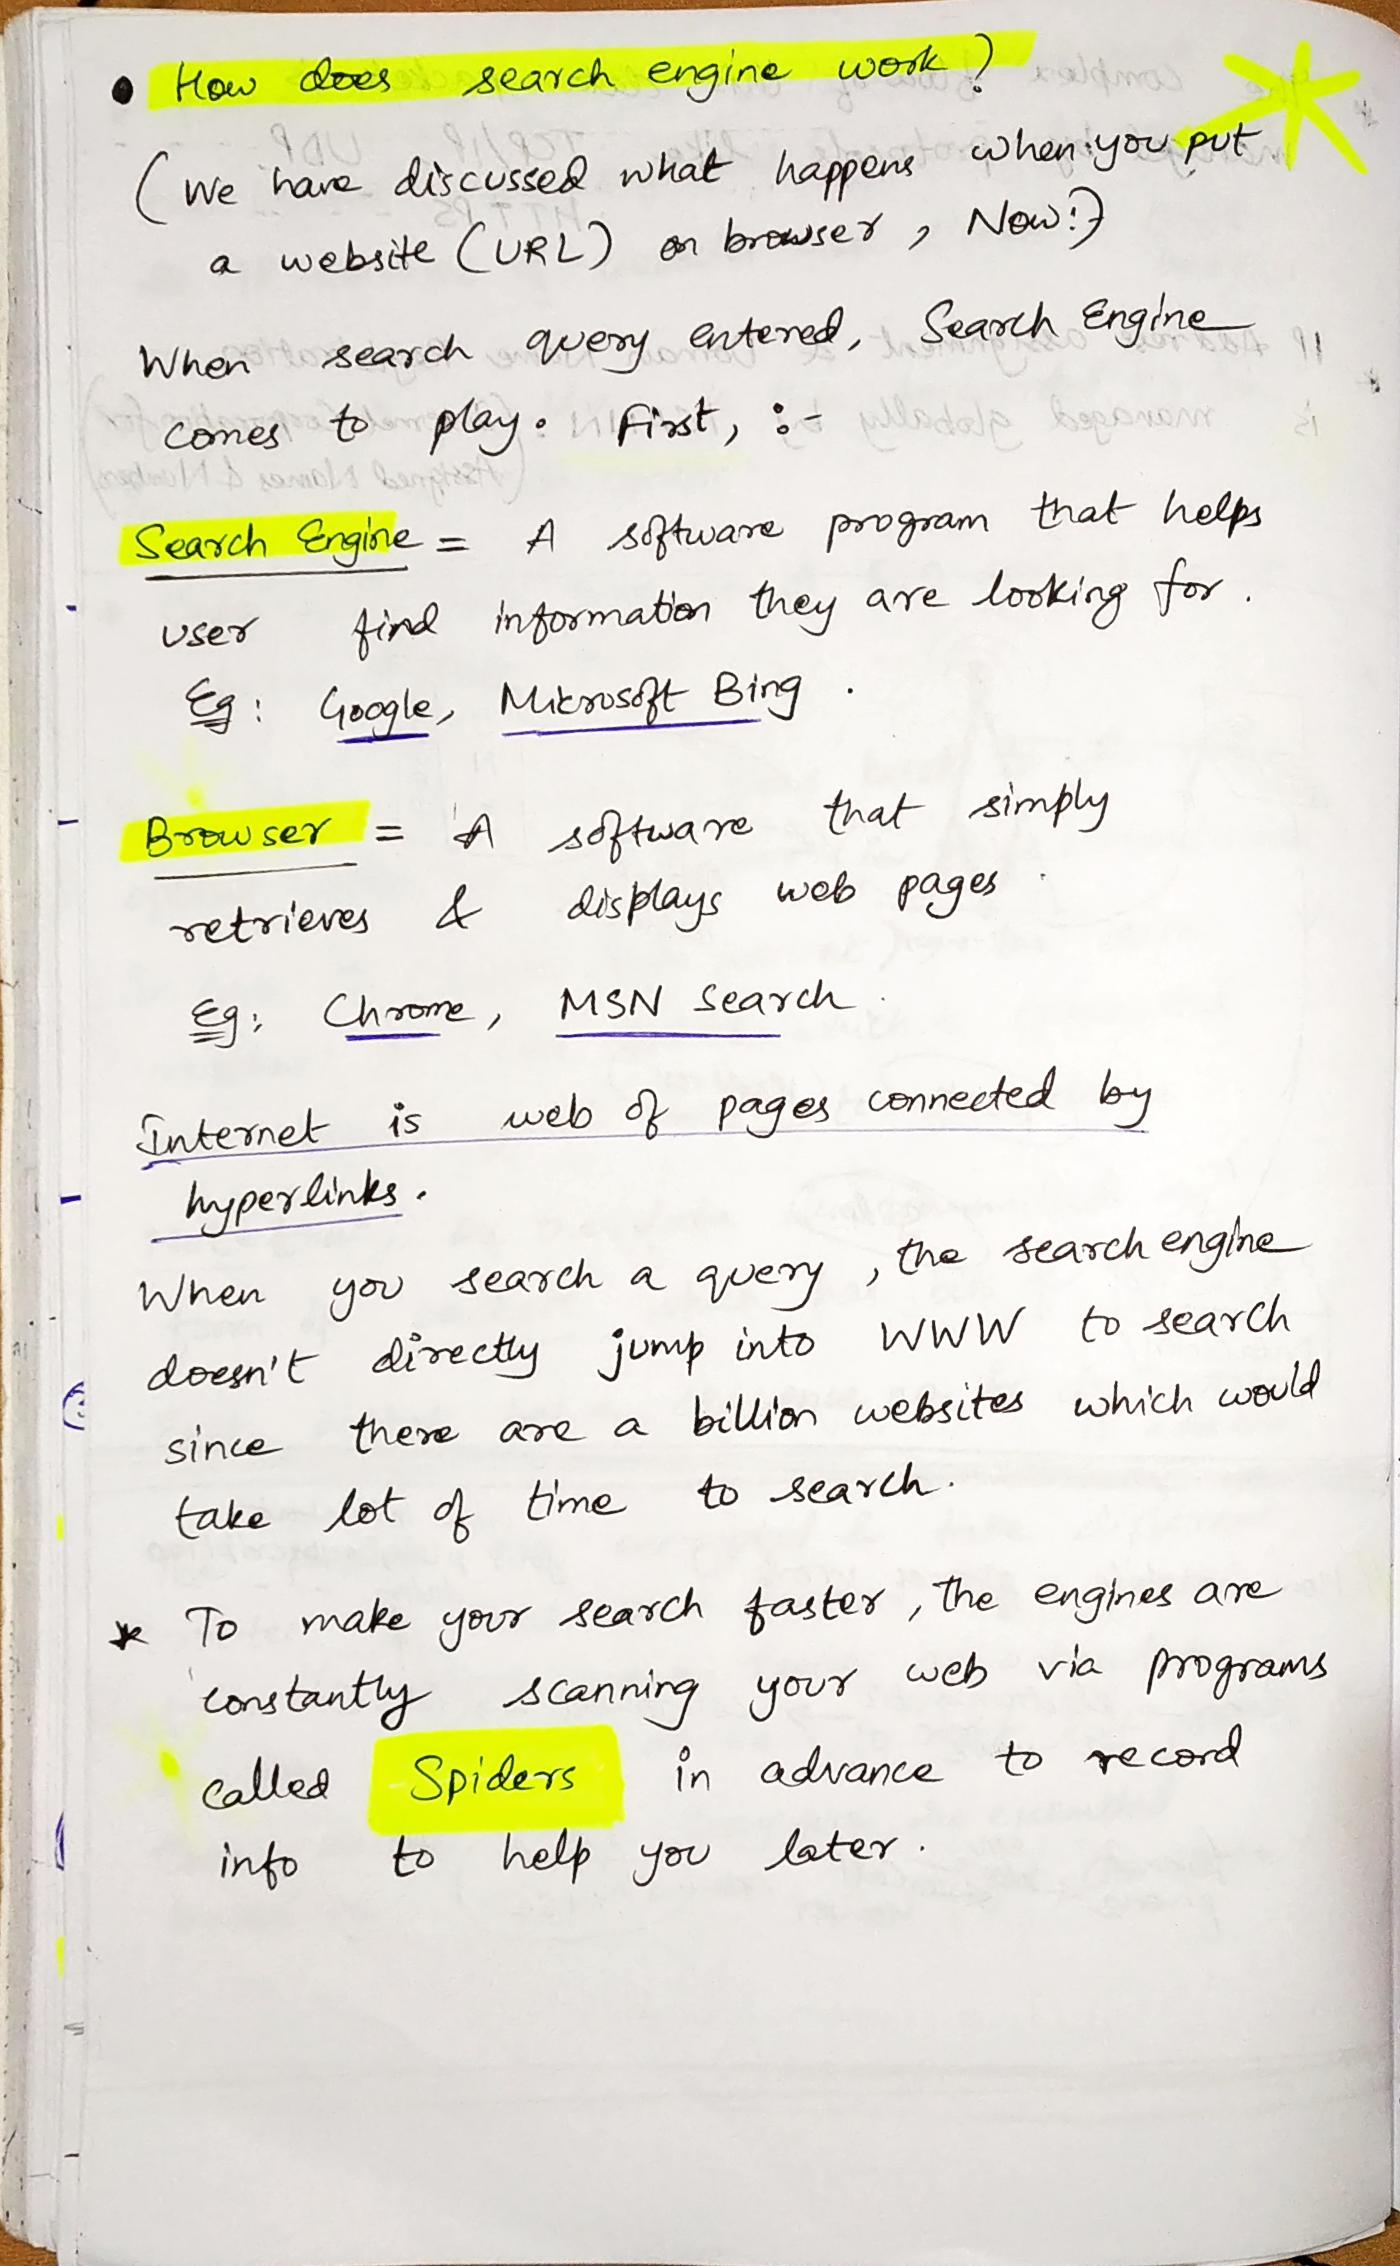 • How does search engine work?
(We have discussed what happens when you put
a website (URL) on browser, Now!)
When search query entered, Search Engine
comes to play. First, :-
Search Engine = A software program that helps
user find information they are looking for.
Eg: Google, Microsoft Bing.
Browser = A software that simply
retrieves & displays web pages.
Eg: Chrome, MSN Search.
Internet is web of pages connected by
hyperlinks.
When you search a query, the search engine
doesn't directly jump into WWW to search
since there are a billion websites which would
take lot of time to search.
* To make your search faster, the engines are
constantly scanning your web via programs
called Spiders in advance to record
info to help you later.